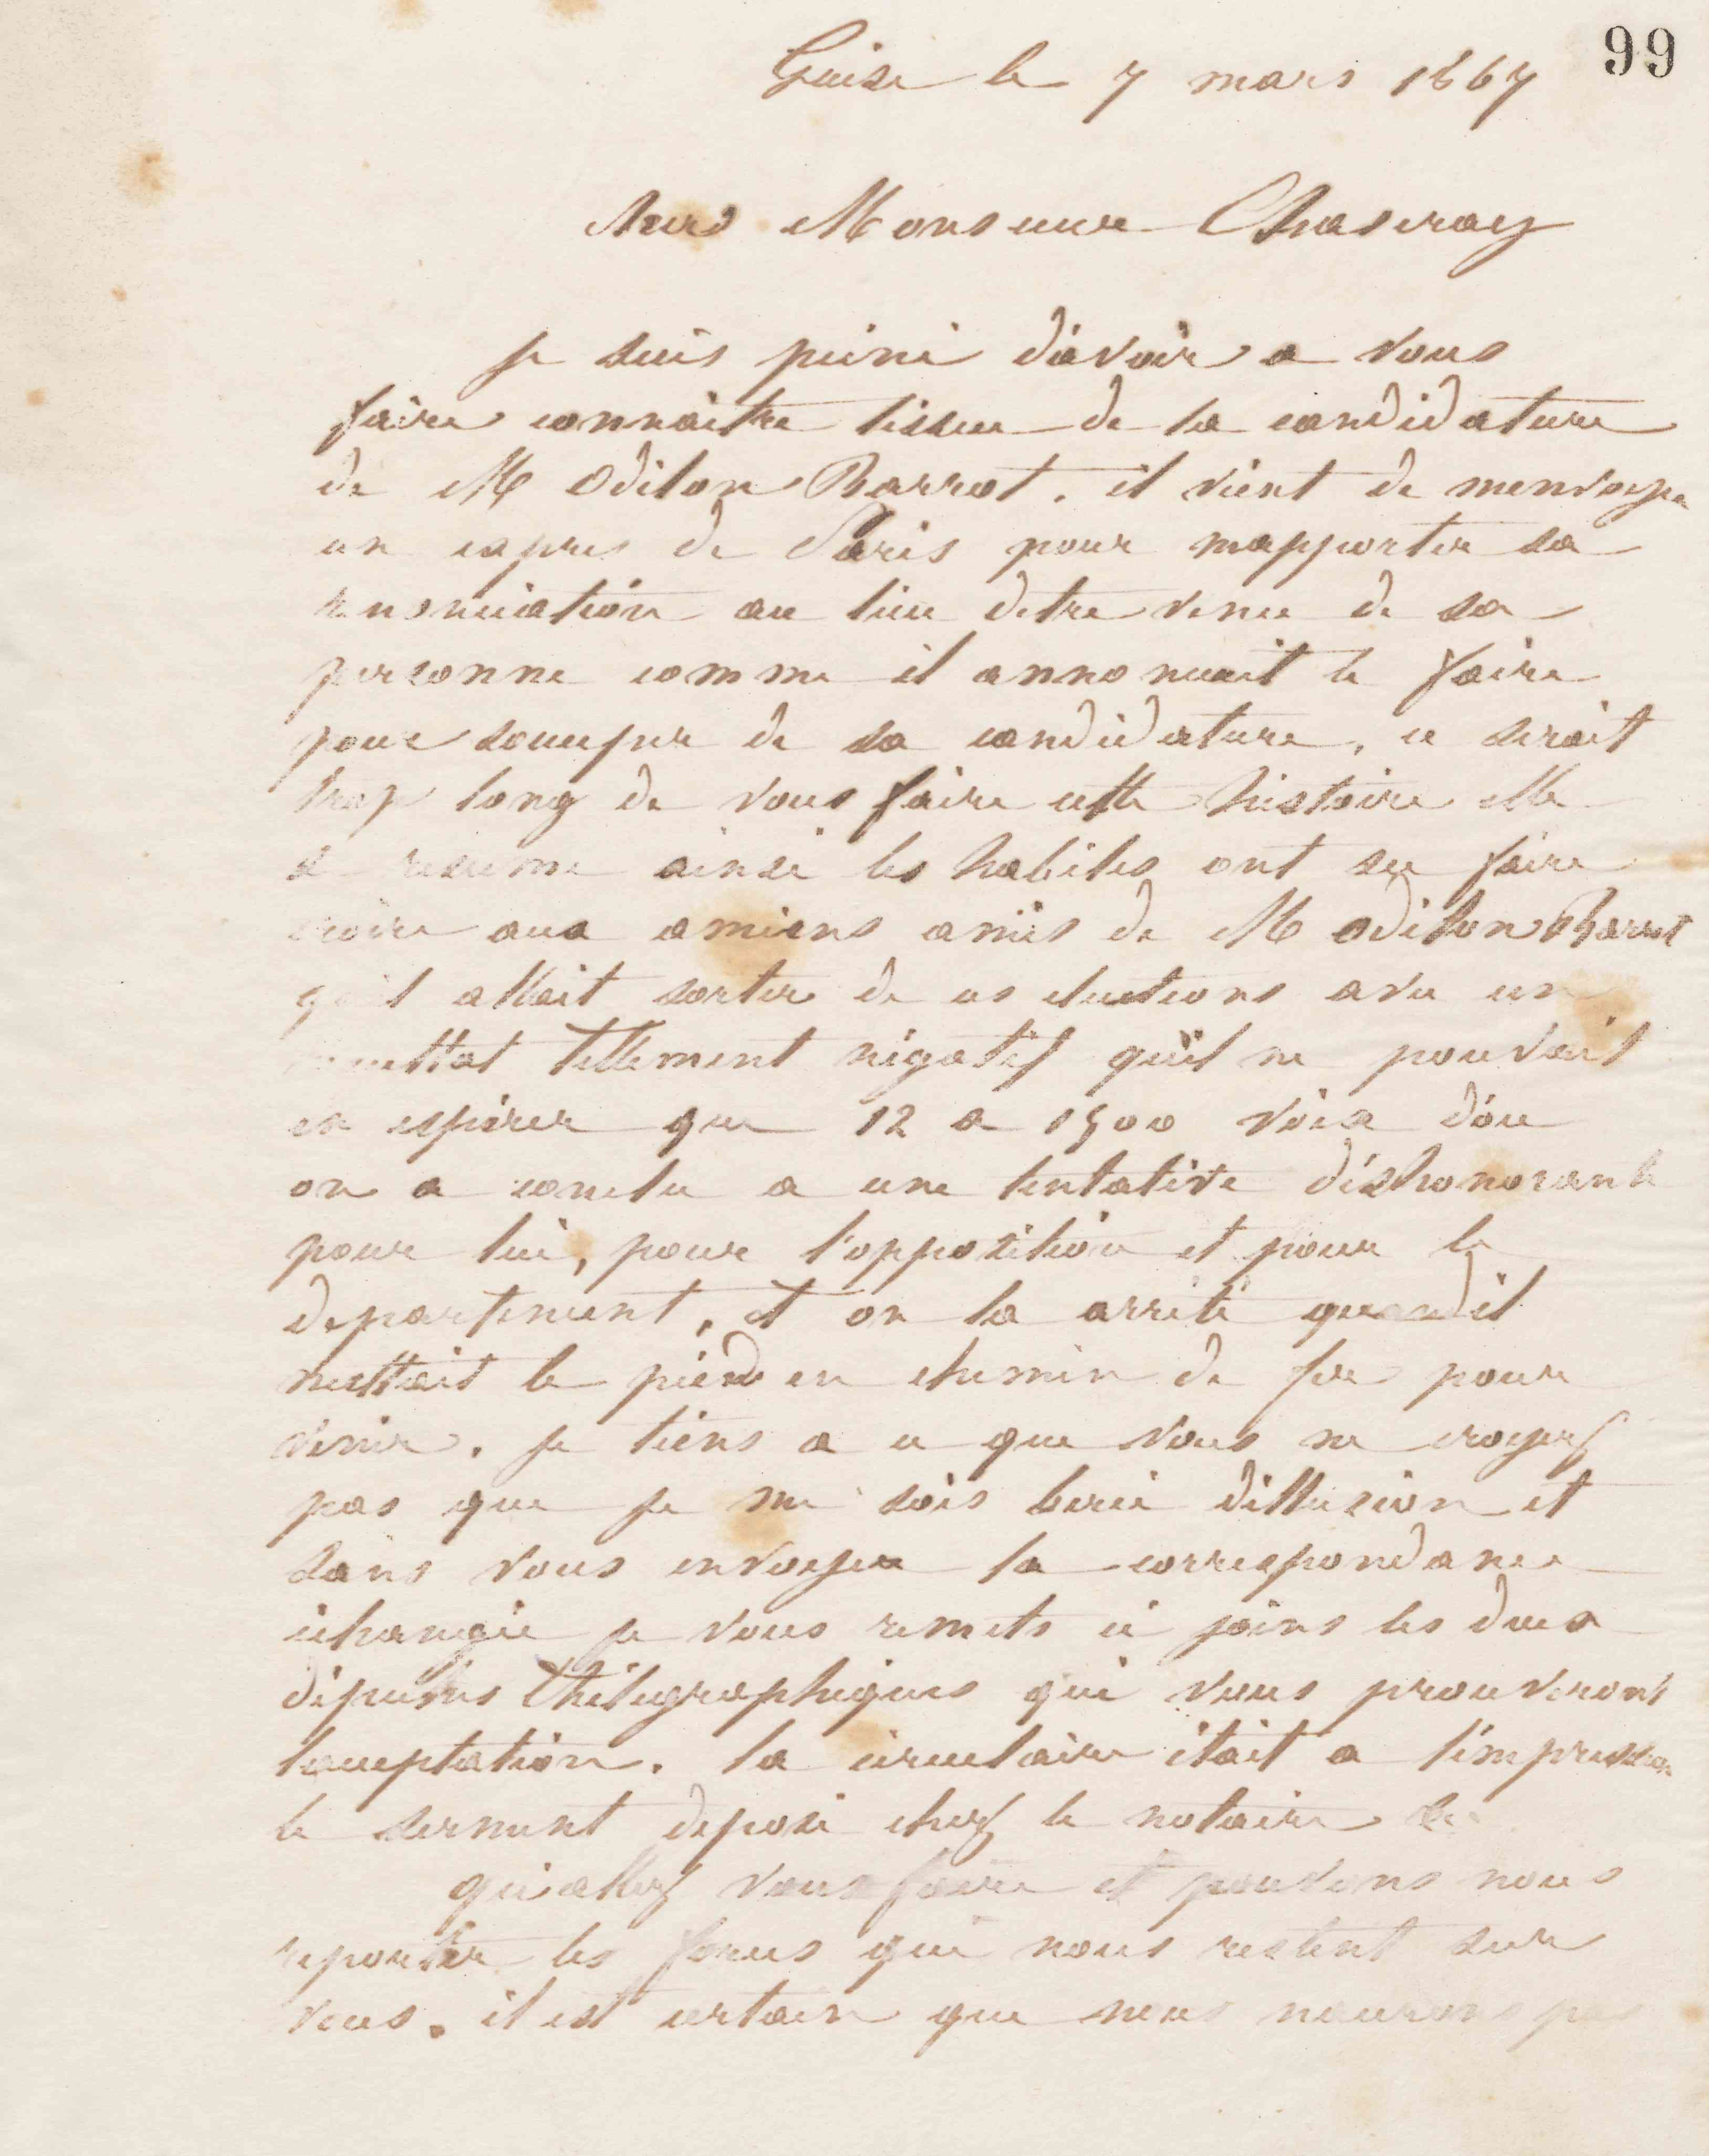 99
Guise le 7 mars 1867
Monsieur Chaseray
je suis peiné d'avoir a vous
faire connaitre lissue de la candidature
de M Odilon Barrot. il vient de menvoyer
un expres de Paris pour mapporter sa
renonciation au lieu detre venu de sa
personne comme il annoncait le faire
pour soccuper de sa candidature, ce serait
trop long de vous faire cette histoire elle
se resume ainsi les habiles ont su faire
croire aux amiens amis de M Odilon Barrot
qu'il allait sortir de ces elections avec un
resultat tellement négatif qu'il ne pouvait
en espérer que 12 a 1500 voix d'ou
on a conclu a une tentative déshonorante
pour lui, pour l'opposition et pour le
departement, et on la arrêté quand il
mettait le pied en chemin de fer pour
venir. je tiens a ce que vous ne croyez
pas que je me sois bercé dillusion et
sans vous envoyer la correspondance
échangée je vous remets ci joins les deux
dépeches thélégraphiques qui vous prouveront
lacceptation. la circulaire était a l'impression
le serment deposé chez le notaire
qu'allez vous faire et pouvons nous
reporter les forces qui nous restent sur
vous. il est certain que nous naurons pas